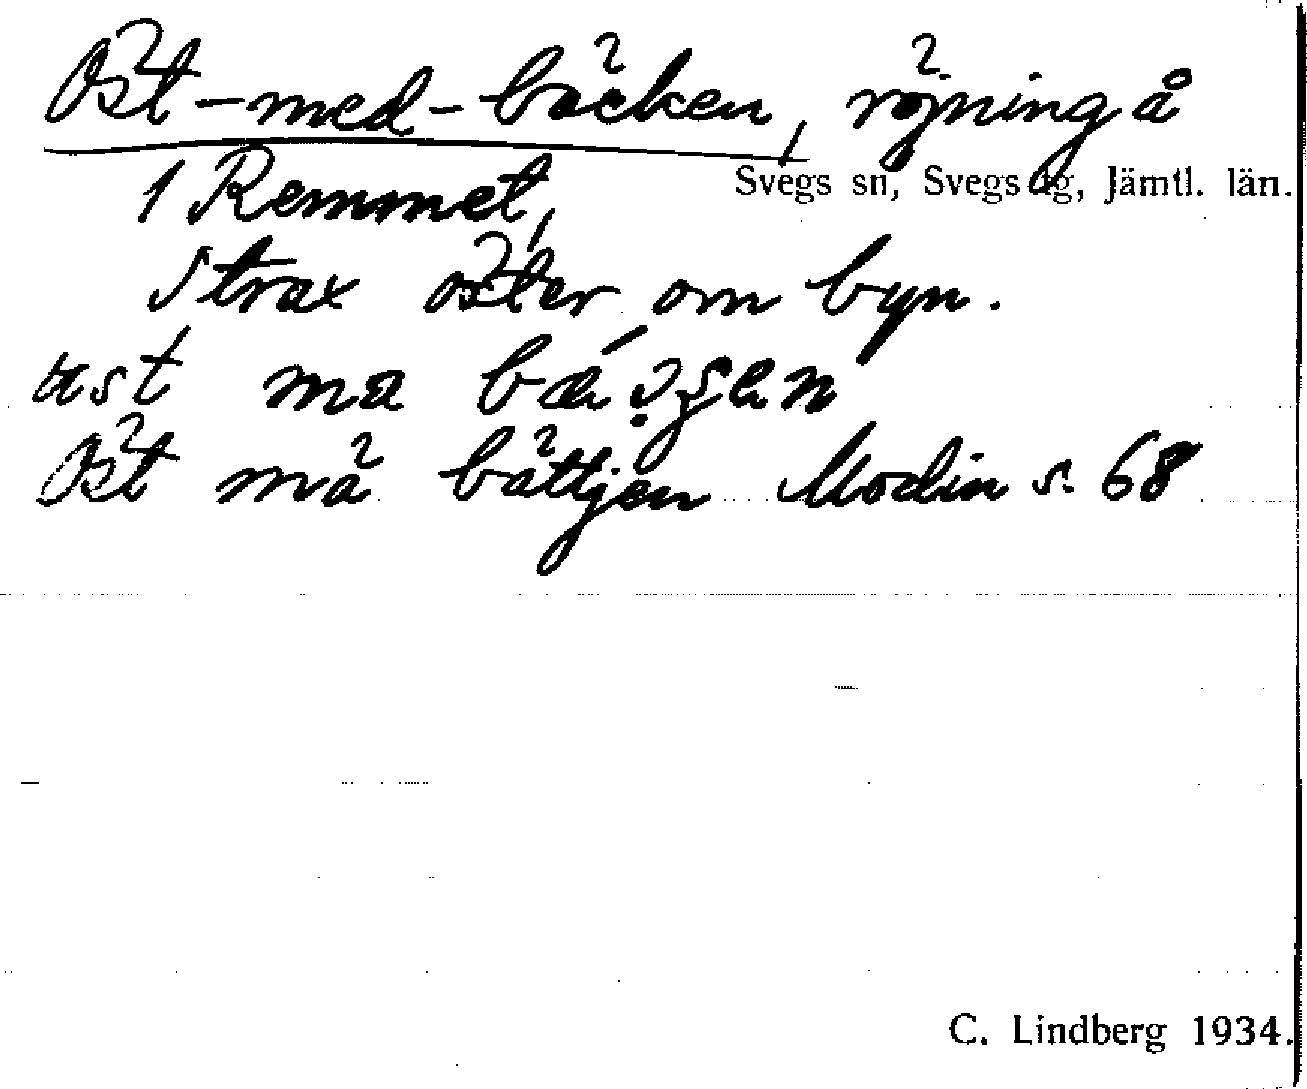 Öst-med-bäcken, röjning å
1 Remmet, Svegs sn, Svegs tg, Jämtl. län.
Strax öster om byn.
öst mä bättjen Modin s. 68
C. Lindberg 1934.